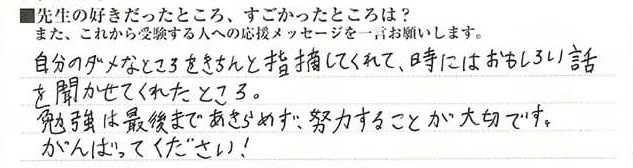 ■先生の好きだったところ、すごかったところは？
また、これから受験する人への応援メッセージを一言お願いします。
自分のダメなところをきちんと指摘してくれて、時にはおもしろい話
を聞かせてくれたところ。
勉強は最後まであきらめず、努力することが大切です。
がんばってください！